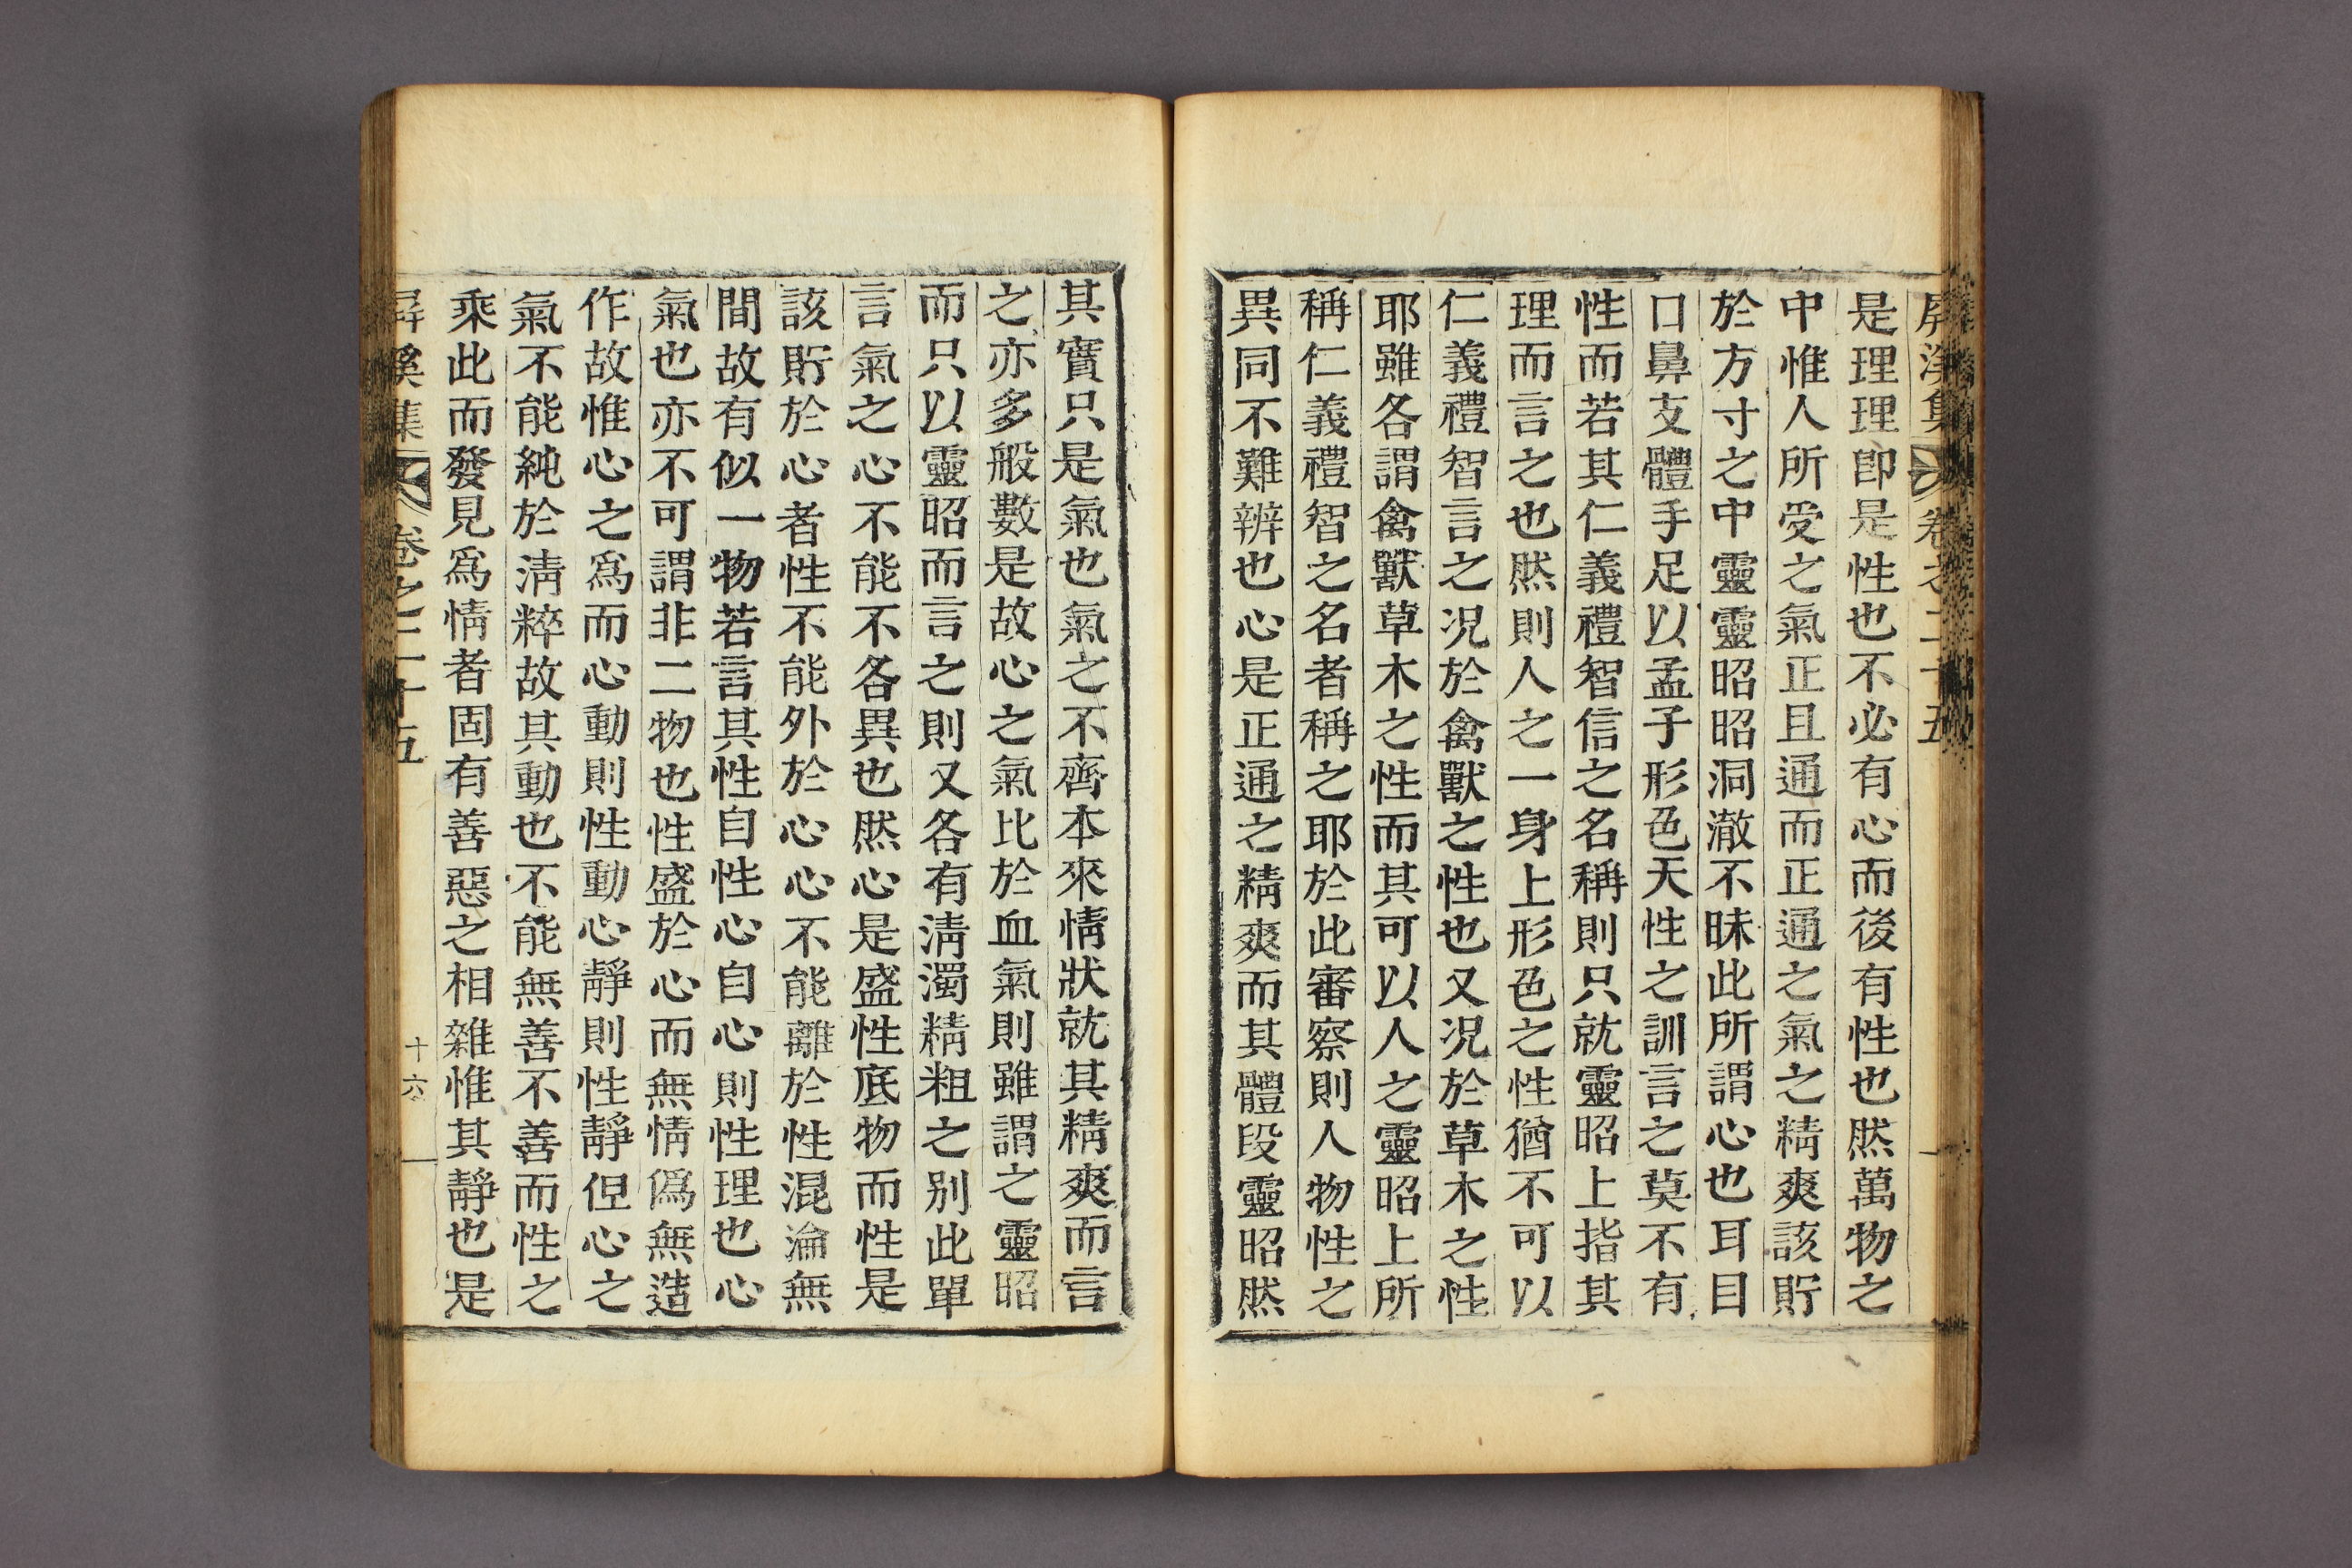 屛溪集 卷之二十五
是理理卽是性也不必有心而後有性也然萬物之
中惟人所受之氣正且通而正通之氣之精爽該貯
於方寸之中靈靈昭昭洞澈不昧此所謂心也耳目
口鼻支體手足以孟子形色天性之訓言之莫不有
性而若其仁義禮智信之名稱則只就靈昭上指其
理而言之也然則人之一身上形色之性猶不可以
仁義禮智言之况於禽獸之性也又况於草木之性
耶雖各謂禽獸草木之性而其可以人之靈昭上所
稱仁義禮智之名者稱之耶於此審察則人物性之
異同不難辨也心是正通之精爽而其體段靈昭然
其實只是氣也氣之不齊本來情狀就其精爽而言
之亦多般數是故心之氣比於血氣則雖謂之靈昭
而只以靈昭而言之則又各有淸濁精粗之別此單
言氣之心不能不各異也然心是盛性底物而性是
該貯於心者性不能外於心心不能離於性混淪無
間故有似一物若言其性自性心自心則性理也心
氣也亦不可謂非二物也性盛於心而無情僞無造
作故惟心之爲而心動則性動心靜則性靜但心之
氣不能純於淸粹故其動也不能無善不善而性之
乘此而發見爲情者固有善惡之相雜惟其靜也是
屛溪集 卷之二十五 十六